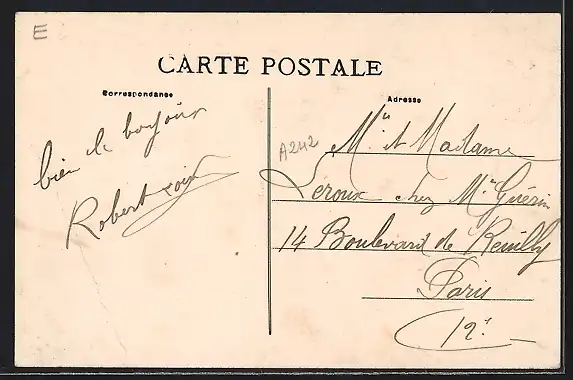 E
CARTE POSTALE
Correspondance
Adresse
bien le bonjour
Robert
A242
Mr et Madame
Leroux chez Mr Guérin
14 Boulevard de Reuilly
Paris
12e